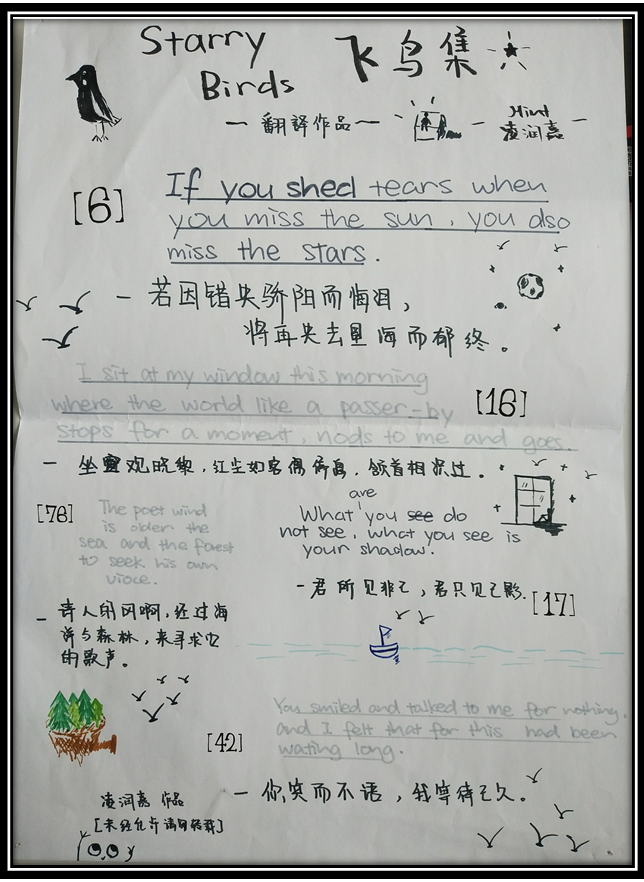 Starry Birds
飞鸟集
一 翻譯作品 一
Mint
凌润嘉 一
[6]
If you shed tears when
you miss the sun, you also
miss the stars.
一 若因错失骄阳而悔泪,
将再失去星海而郁终。
I sit at my window this morning
where the world like a passer-by
stops for a moment, nods to me and goes.
[16]
一 坐窗观晓黎,红尘如客偶
颔首相识过。
[78]
The poet wind
is older the
sea and the forest
to seek his own
vioce.
are
What you see do
not see, what you see is
your shadow.
一 君所见非己,君只见己影.
[17]
一 诗人的风啊,经过海
洋与森林,来寻求它
的歌声。
[42]
You smiled and talked to me for nothing,
and I felt that for this had been
wating long.
一 你笑而不语,我等待已久。
凌润嘉 作品
[未经允许请勿转载]